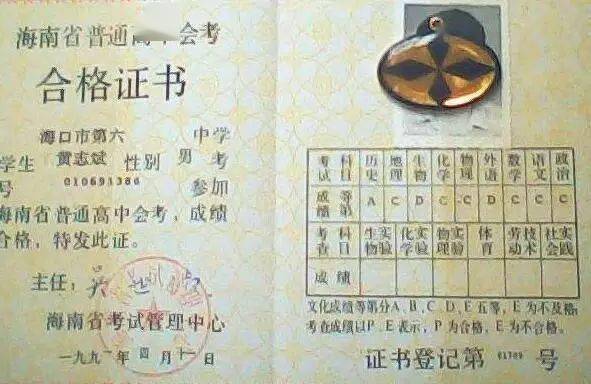 海南省普通高中会考
合格证书
海口市第六 中学
学生 黄志斌 性别 男 考
号 010691386 参加
海南省普通高中会考，成绩
合格，特发此证。
主任：
海南省考试管理中心
一九九 年 四 月 十一 日
考试 科目 历史 地理 生物 化学 物理 外语 数学 语文 政治
成绩 等第 A C D C D C D C C
考查 科目 生物实验 化学实验 物理实验 体育 劳动技术 社会实践
成绩
文化成绩等第分A、B、C、D、E五等，E为不及格；
考查成绩以P、E表示，P为合格，E为不合格。
证书登记第 01789 号